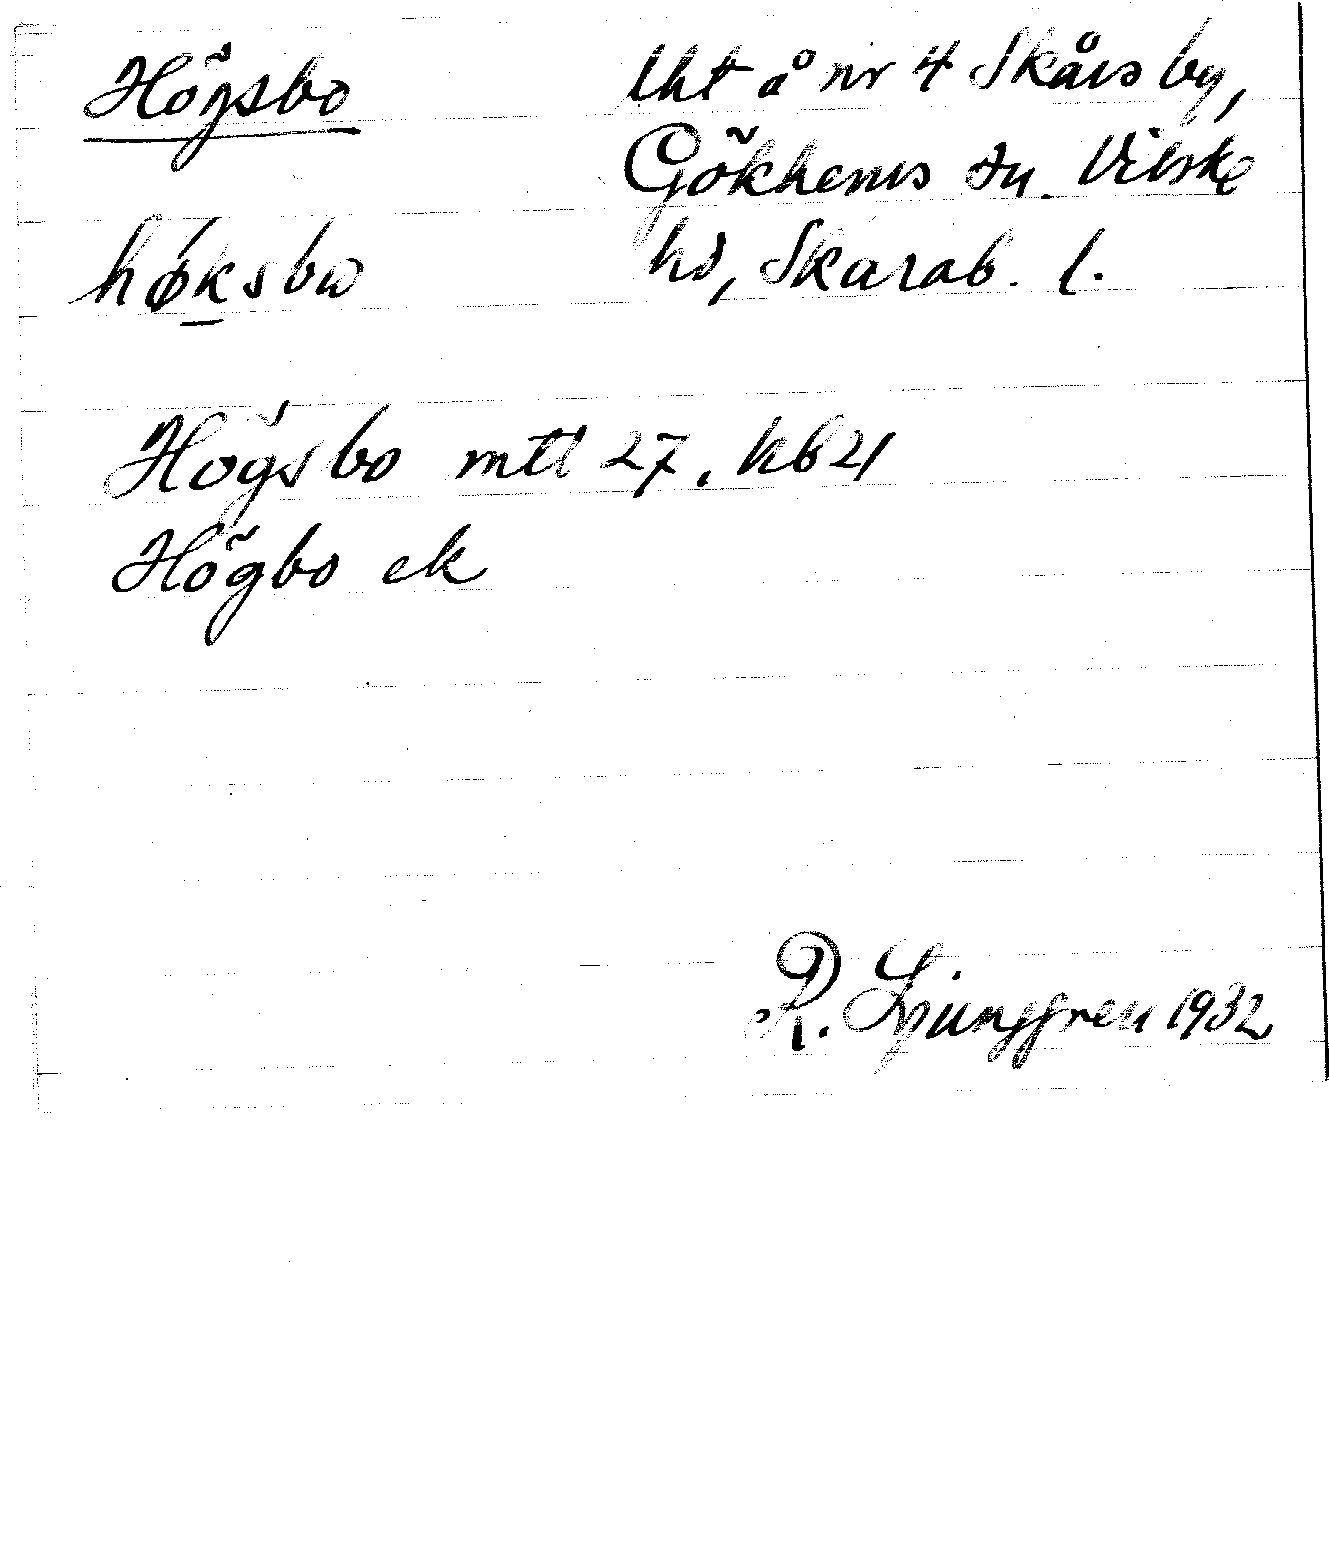 Högsbo
lht å nr 4 Skårs by,
Gökhems sn. Vilske
hd, Skarab. l.
høksbω
Högsbo mtl 27. kb 21
Högbo ek
R. Ljunggren 1932